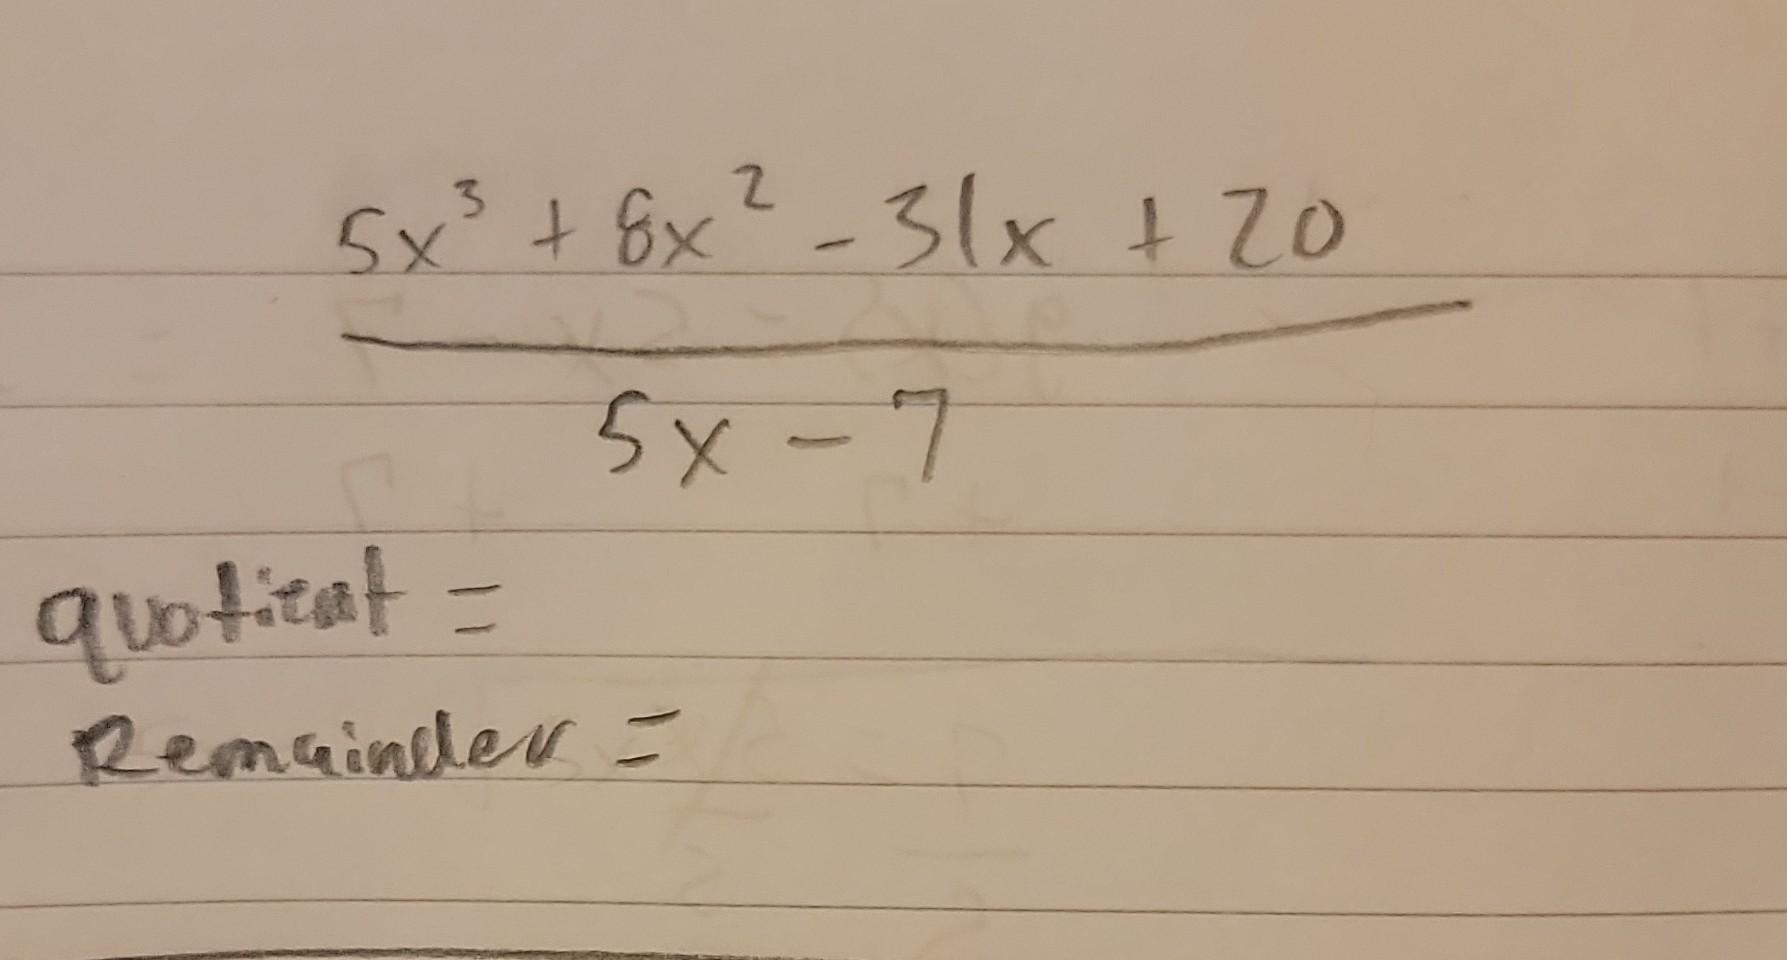 5x³ + 8x² - 31x + 20
5x - 7
quotient =
Remainder =